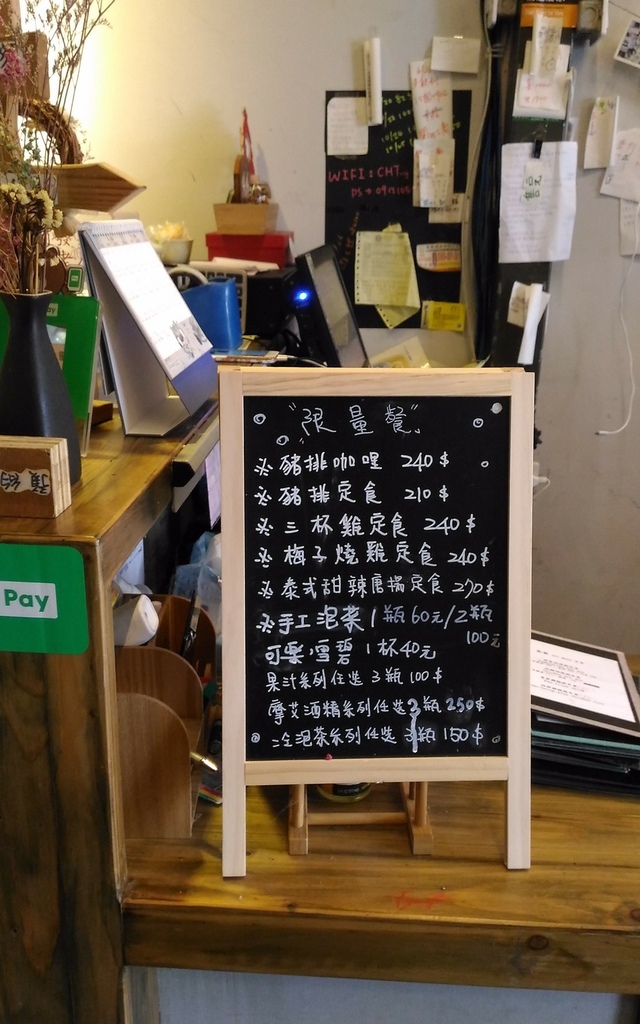 WIFI:CHT
Pay
"限量餐"
※豬排咖哩 240$
※豬排定食 210$
※三杯雞定食 240$
※梅子燒雞定食 240$
※泰式甜辣唐揚定食 270$
※手工泡菜1瓶60元/2瓶
100元
可樂.雪碧 1杯40元
果汁系列任選 3瓶100$
摩艾酒精系列任選3瓶 250$
冷泡茶系列任選 3瓶 150$